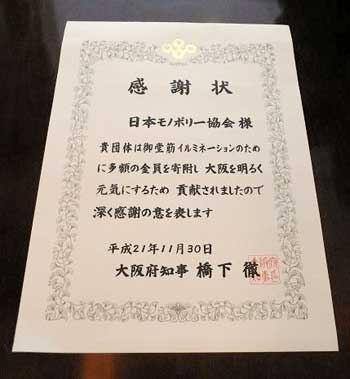 感謝状
日本モノポリー協会 様
貴団体は御堂筋イルミネーションのため
に多額の金員を寄附し 大阪を明るく
元気にするため 貢献されましたので
深く感謝の意を表します
平成21年11月30日
大阪府知事 橋下 徹